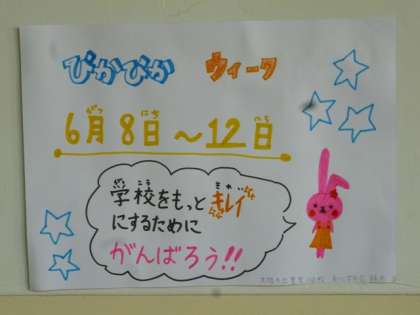 ぴかぴか ウィーク
6月8日～12日
学校をもっとキレイ
にするために
がんばろう!!